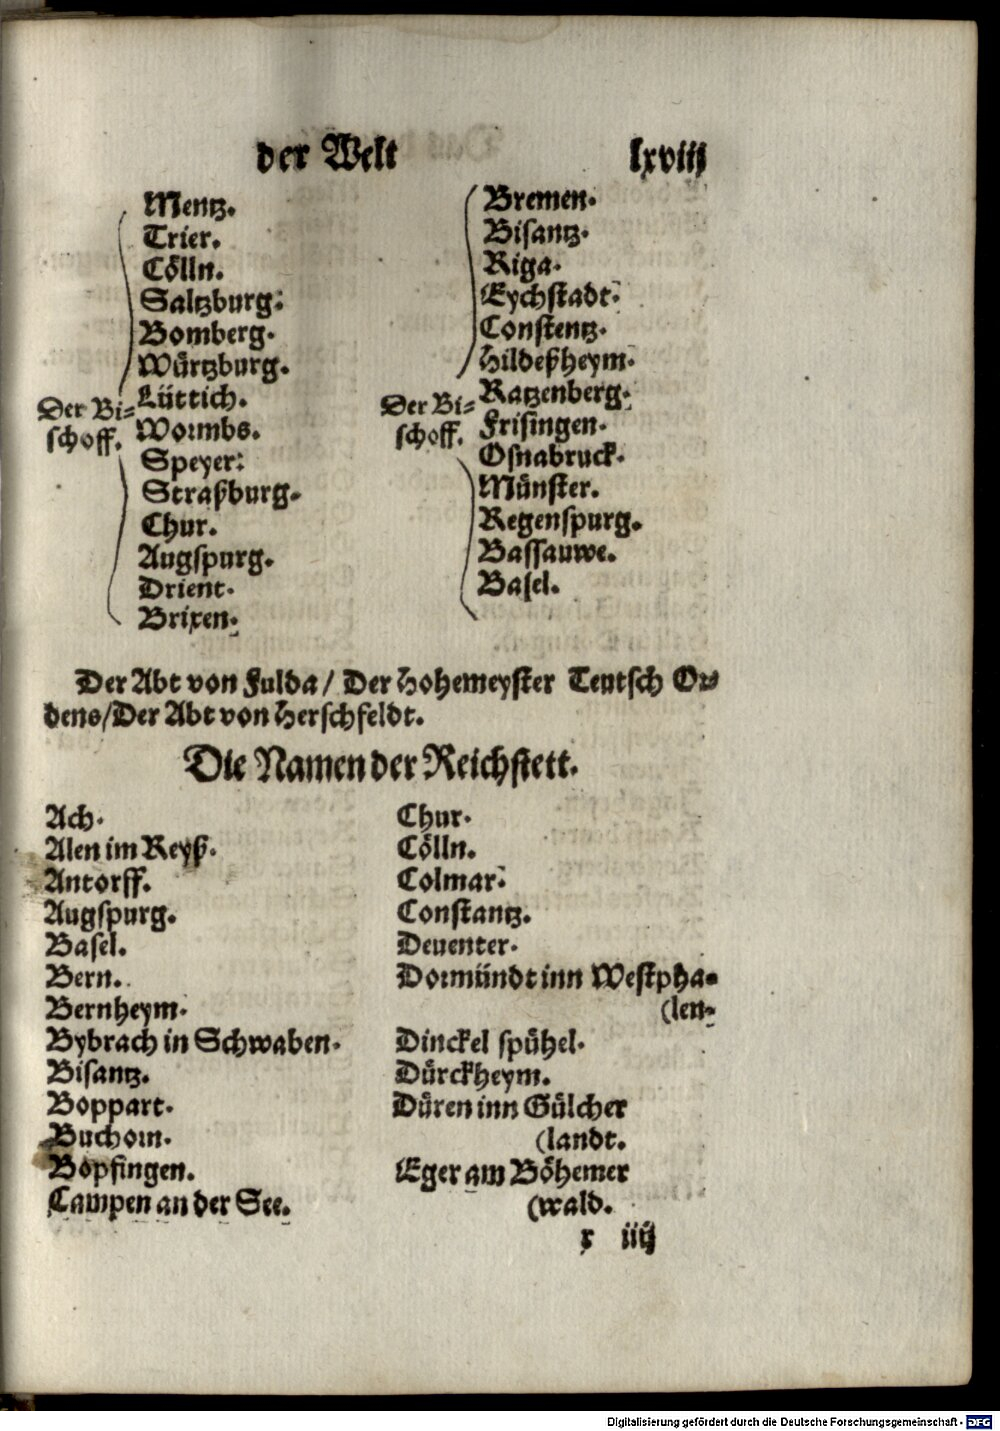 der Welt lxviij
Mentz.
Trier.
Cölln.
Saltzburg.
Bomberg.
Würtzburg.
Lüttich.
Der Bi=
schoff.
Wormbs.
Speyer.
Straßburg.
Chur.
Augspurg.
Drient.
Brixen.
Bremen.
Bisantz.
Riga.
Eychstadt.
Constentz.
Hildeßheym.
Ratzenberg.
Der Bi=
schoff.
Frisingen.
Osnabruck.
Münster.
Regenspurg.
Bassauwe.
Basel.
Der Abt von Fulda/ Der Hohemeyster Teutsch Or
dens/Der Abt von Herschfeldt.
Die Namen der Reichstett.
Ach.
Alen im Reyß.
Antorff.
Augspurg.
Basel.
Bern.
Bernheym.
Bybrach in Schwaben.
Bisantz.
Boppart.
Buchorn.
Bopfingen.
Campen an der See.
Chur.
Cölln.
Colmar.
Constantz.
Deuenter.
Dormündt inn Westpha=
(len.
Dinckel spühel.
Dürckheym.
Düren inn Gülcher
(landt.
Eger am Böhemer
(wald.
x iiij
Digitalisierung gefördert durch die Deutsche Forschungsgemeinschaft - DFG